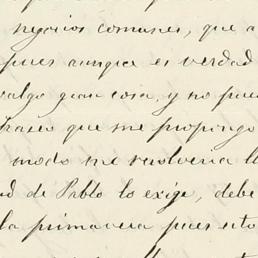 negocios comunes, que a
pues aunque es verdad
valgo gran cosa, y no pue
que me propongo
modo me resolveria
ad de Pablo lo exige, debe
la primavera pues